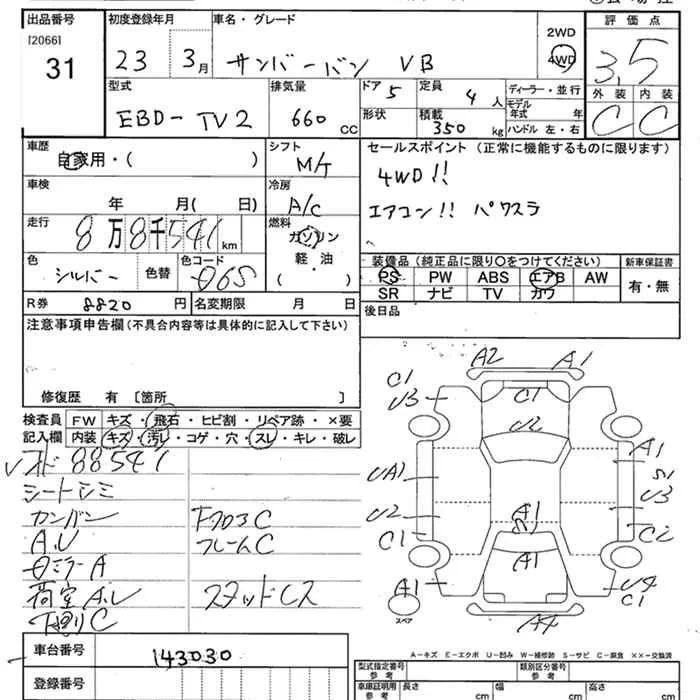 出品番号 初度登録年月 車名・グレード 2WD 評価点
[2066] 31 23 3月 サンバーバン VB 4WD 3.5
外装 内装
C C
型式 排気量 ドア 定員 ディーラー・並行
EBD-TV2 660 cc 5 4人 モデル年式 年
形状 積載 350 kg ハンドル 左・右
車歴 シフト セールスポイント (正常に機能するものに限ります)
自家用・( ) M/T 4WD!!
車検 冷房 エアコン!! パワステ
年 月( 日) A/C
走行 燃料
8万8千541km ガソリン
軽・油
( )
色 色替 色コード
シルバー 065
装備品 (純正品に限り○をつけてください) 新車保証書
PS PW ABS エアB AW 有・無
SR ナビ TV カワ
R券 8820 円 名変期限 月 日
後日品
注意事項申告欄 (不具合内容等は具体的に記入して下さい)
修復歴 有 〔箇所 〕
検査員 FW キズ・飛石・ヒビ割・リペア跡・×要
記入欄 内装 キズ・汚レ・コゲ・穴・スレ・キレ・破レ
88541
シートシミ
カンバン
A.U
ミラーA
荷室 A.U
下廻りC
下フロアC
フレームC
スタッドレス
A2 A1
C1
U3
C1
U2
UA1
U2
C1
A1
S1
U3
C2
A1
A1
A1
U4
C1
A4
スペア
A-キズ E-エクボ U-凹み W-補修跡 S-サビ C-腐食 ××-交換済
車台番号 143030
登録番号
型式指定番号 参考 類別区分番号 参考
車庫証明用 参考 長さ cm 幅 cm 高さ cm